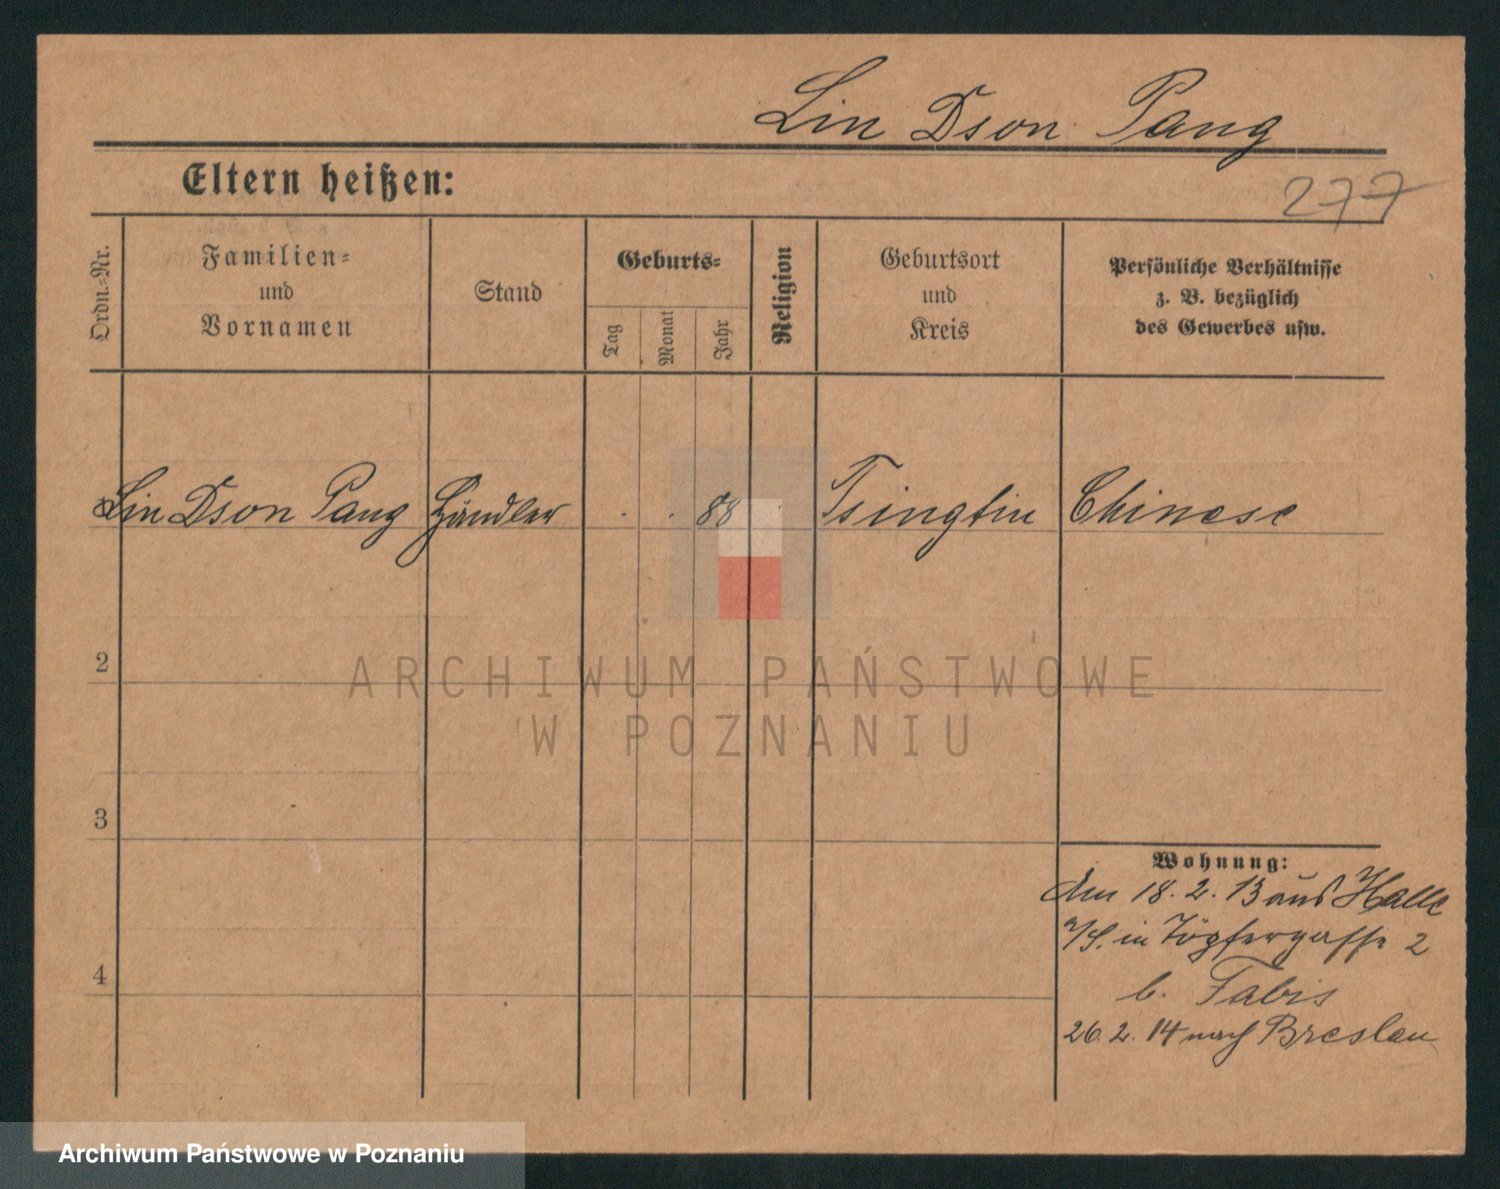 Lin Dson Pang
Eltern heißen:
277
Ordn.-Nr.
Familien-
und
Vornamen
Stand
Geburts-
Tag
Monat
Jahr
Religion
Geburtsort
und
Kreis
Persönliche Verhältnisse
z. B. bezüglich
des Gewerbes usw.
Lin Dson Pang Händler . . 88 . Tsingtin Chinese
2
3
4
Wohnung:
Am 18. 2. 13 aus Halle
a/S. in Töpfergasse 2
b. Fabis
26. 2. 14 nach Breslau
ARCHIWUM PAŃSTWOWE
W POZNANIU
Archiwum Państwowe w Poznaniu